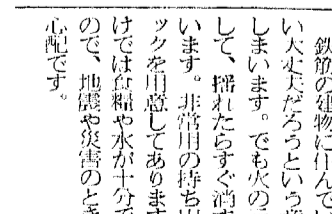 鉄筋の建物に住んで
い大丈夫だろうという
しまいます。でも火の
して、揺れたらすぐ消
います。非常用の持ち
ックを用意してありま
けでは食糧や水が十分で
ので、地震や災害のとき
心配です。